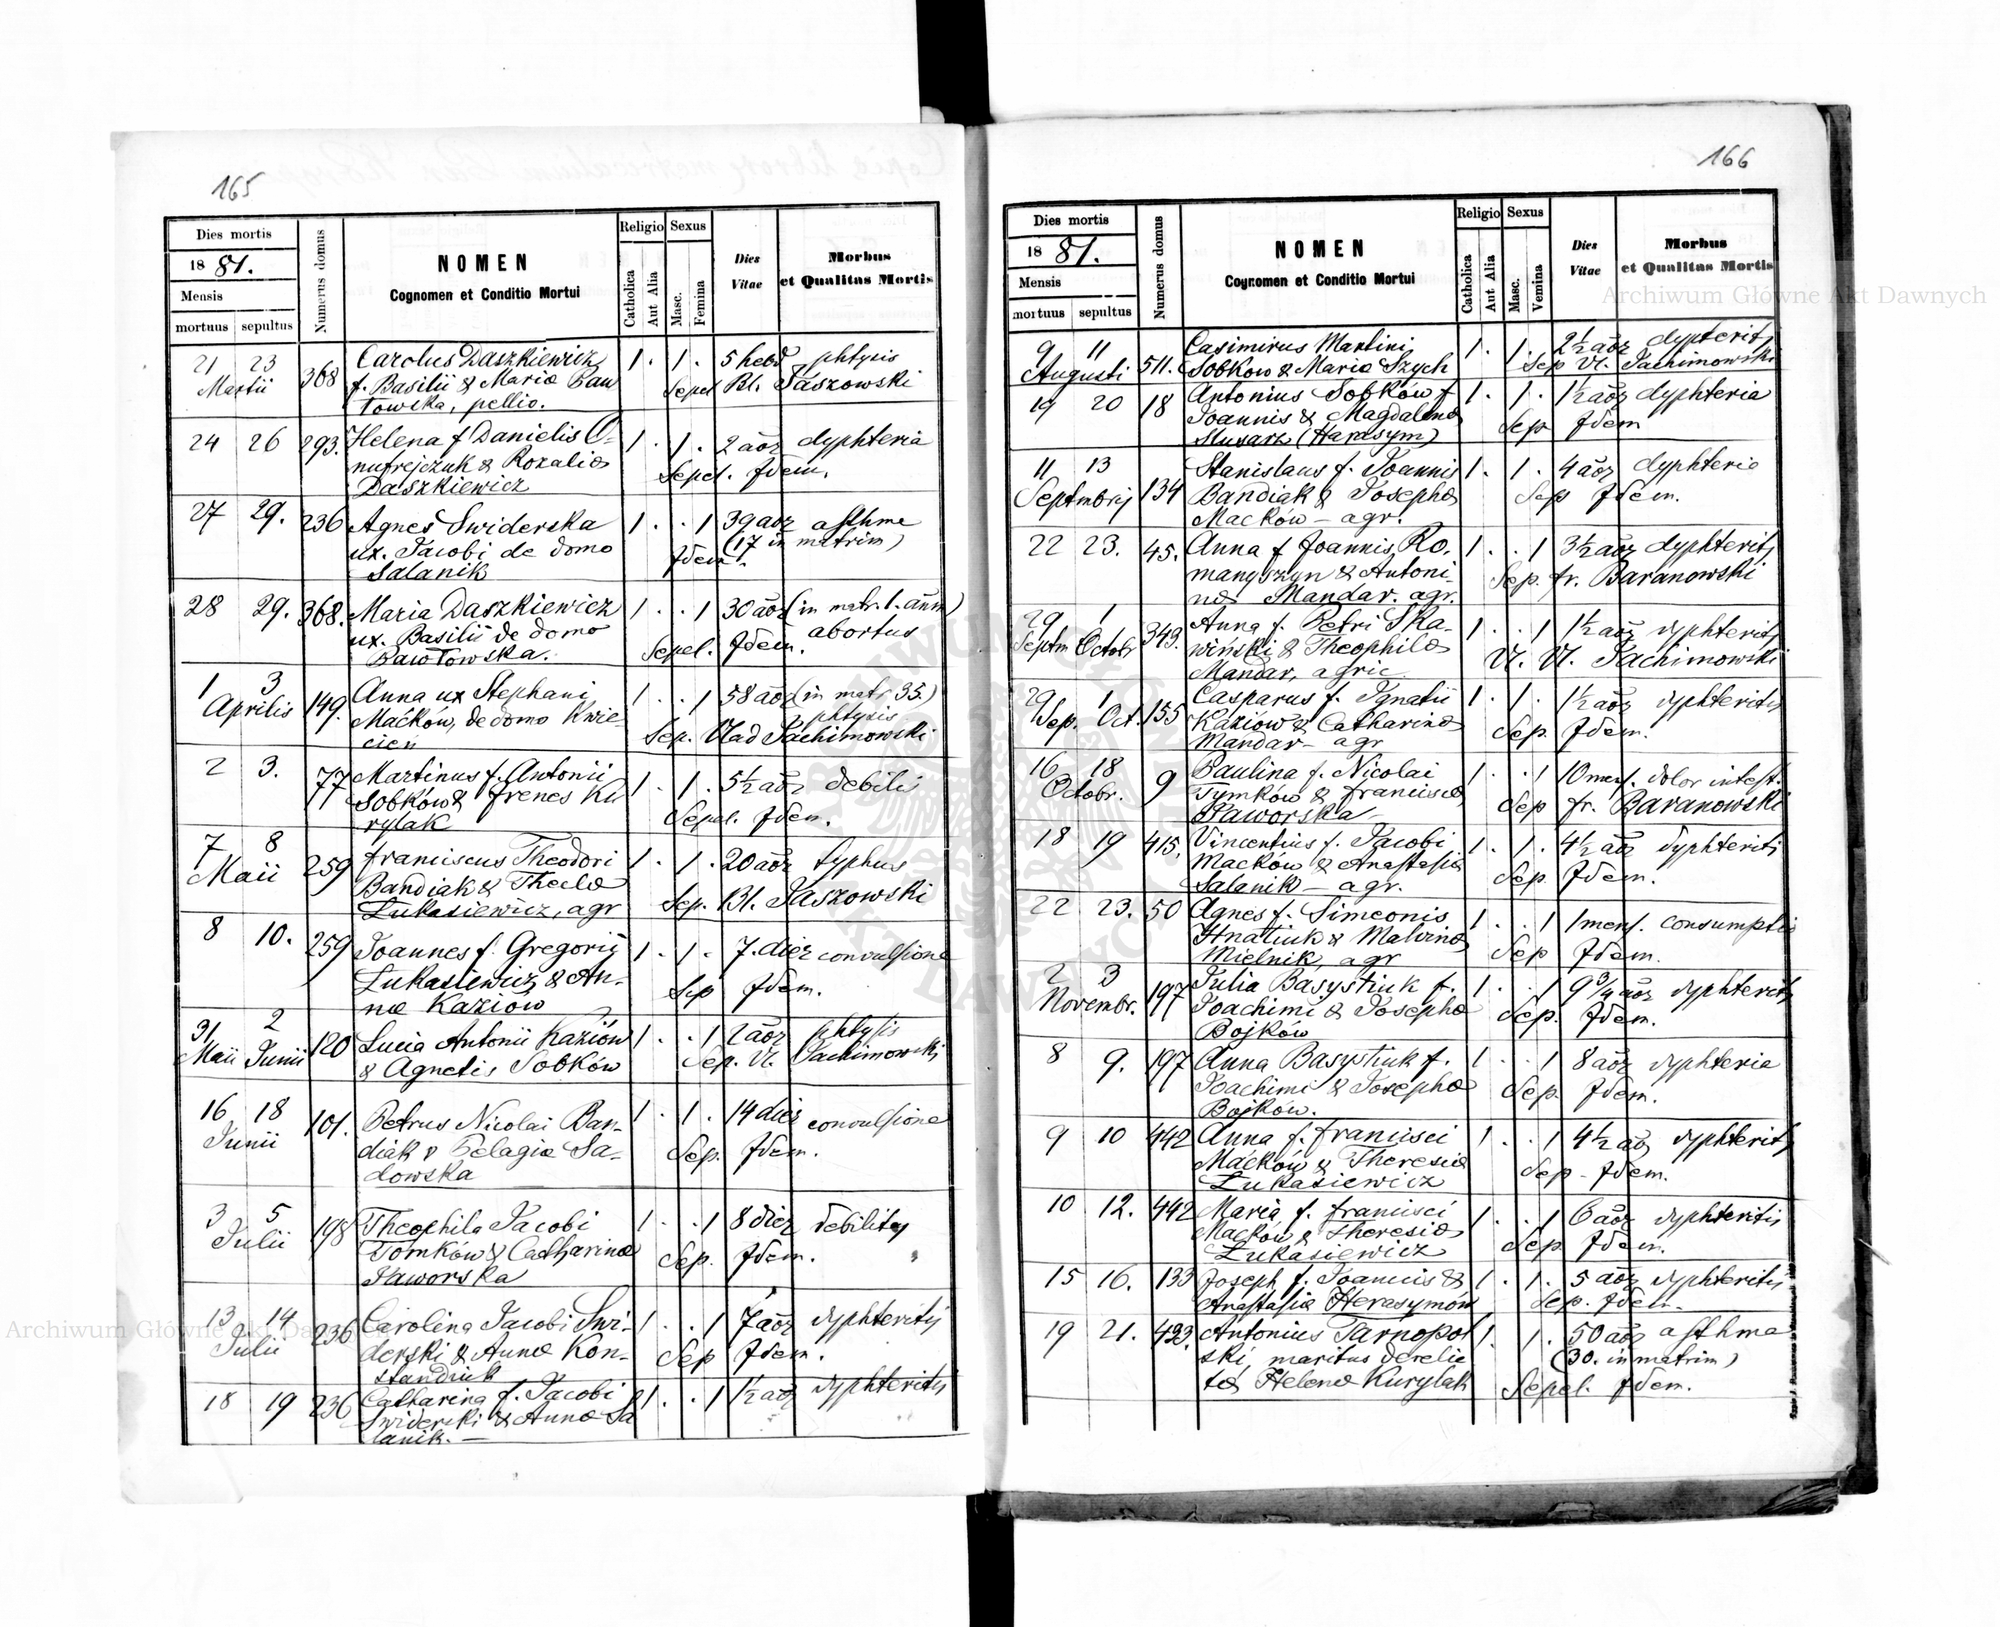 165
Dies mortis
1881.
Mensis
mortuus sepultus
Numerus domus
NOMEN
Cognomen et Conditio Mortui
Religio
Catholica
Aut Alia
Sexus
Masc.
Femina
Dies
Vitae
Morbus
et Qualitas Mortis
21 23 368 Carolus Daszkiewicz 1 . 1 . 5 hebd phtysis
Martii f. Basilii & Mariæ Paw Sepel Bl. Jaszowski
łowska, pellio.
24 26 293. Helena f Danielis O- 1 . 1 . 2 aōr dyphteria
nufrejczuk & Rozaliæ Sepel. Idem.
Daszkiewicz
27 29. 236 Agnes Swiderska 1 . . 1 39 aōr asthme
ux. Jacobi de domo (17 in matrim)
Salanik Idem.
28 29. 368. Maria Daszkiewicz 1 . . 1 30 aōr (in matr. 1. anm)
ux. Basilii de domo abortus
Bawłowska. Sepel. Idem.
1 3 149. Anna ux Stephani 1 . . 1 58 aōr (in matr 35.)
Aprilis Maćków, de domo Kwie- phtysis
cień Sep. Vlad Jachimowski
2 3. 77 Martinus f. Antonii 1 . 1 . 5½ aōr debilis
Sobków & Irenes Ku Sepel. Idem.
rylak
7 8 259 Franciscus Theodori 1 . 1 . 20 aōr typhus
Maii Bandiak & Theclæ Sep. Bl. Jaszowski
Łukasiewicz, agr
8 10. 259 Joannes f. Gregorii 1 . 1 . 7. dier convulsione
Łukasiewicz & An- Sep Idem.
næ Kaziow
31 2 120 Lucia Antonii Kaziów 1 . . 1 2 aōr phtysis
Maii Junii & Agnetis Sobków Sep. Vl. Jachimowski
16 18 101. Petrus Nicolai Ban- 1 . 1 . 14 dier convulsione
Junii diak & Pelagiæ Sa- Sep. Idem.
dowska
3 5 198 Theophila Jacobi 1 . . 1 8 dier debilitas
Julii Tomków & Catharinæ Sep. Idem.
Jaworska
13 14 236 Carolina Jacobi Swi- 1 . . 1 7 aōr dyphteritis
Julii derski & Annæ Kon- Sep Idem.
standiuk
18 19 236 Catharina f. Jacobi 1 . . 1 1½ aōr dyphteritis
Swiderski & Annæ Sa
lanik.
166
Dies mortis
1881.
Mensis
mortuus sepultus
Numerus domus
NOMEN
Cognomen et Conditio Mortui
Religio
Catholica
Aut Alia
Sexus
Masc.
Vemina
Dies
Vitae
Morbus
et Qualitas Mortis
9 11 511. Casimirus Martini 1 . 1 . 2½ aōr dypterit
Augusti Sobków & Mariæ Szych Sep Vl. Jachimowski
19 20 18 Antonius Sobków f 1 . 1 . 1½ aōr dyphteria
Joannis & Magdalenæ Sep Idem
Slusarz (Harasym)
11 13 134 Stanislaus f. Joannis 1 . 1 . 4 aōr dyphterie
Septmbris Bandiak & Josephæ Sep Idem.
Maćków - agr.
22 23. 45. Anna f Joannis Ro. 1 . . 1 3½ aōr dyphteritis
manyszyn & Antoni- Sep. fr. Baranowski
næ Mandar. agr.
29 1 343. Anna f. Petri Ska- 1 . . 1 1½ aōr dyphteritis
Septm Octobr wiński & Theophilæ Vl. Vl. Jachimowski
Mandar, agric
29 1 155 Casparus f. Ignatii 1 . 1 . 1½ aōr dyphteritis
Sep. Oct. Kaziów & Catharinæ Sep. Idem.
Mandar - agr
16 18 9 Paulina f. Nicolai 1 . . 1 10 mens. dolor intest.
Octobr. Tymków & Franciscæ Sep fr. Baranowski
Jaworska
18 19 415. Vincentius f. Jacobi 1 . 1 . 4½ aōr dyphteritis
Maćków & Anastasiæ Sep Idem.
Salanik - agr.
22 23. 50 Agnes f. Simeonis 1 . . 1 1 mens. consumptio
Hnatiuk & Malvinæ Sep Idem.
Mielnik, agr
2 3 197 Julia Basystiuk f. 1 . . 1 9¾ aōr dyphteritis
Novembr. Joachimi & Josephæ Sep. Idem.
Bojków
8 9. 197 Anna Basystiuk f. 1 . . 1 8 aōr dyphterie
Joachimi & Josephæ Sep. Idem.
Bojków.
9 10 442 Anna f. Francisci 1 . . 1 4½ aōr dyphteritis
Maćków & Theresiæ Sep - Idem.
Łukasiewicz
10 12. 442 Maria f. Francisci 1 . . 1 6 aōr dyphteritis
Maćków & Theresiæ Sep. Idem.
Łukasiewicz
15 16. 133 Joseph f. Joannis & 1 . 1 . 5 aōr dyphteritis
Anastasiæ Herasymów Sep. Idem.
19 21. 493. Antonius Tarnopol 1 . 1 . 50 aōr asthma
ski, maritus derelic (30. in matrim)
tæ Helenæ Kurylak Sepel. Idem.
Archiwum Główne Akt Dawnych
Archiwum Główne Akt Dawnych